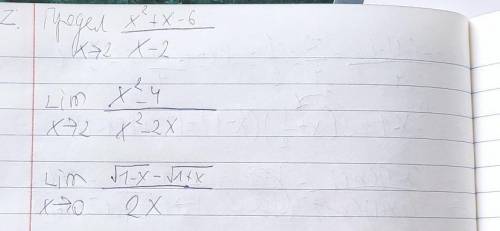 2. Предел x²+x-6
x→2 x-2
Lim x²-4
x→2 x²-2x
Lim √1-x-√1+x
x→0 2x